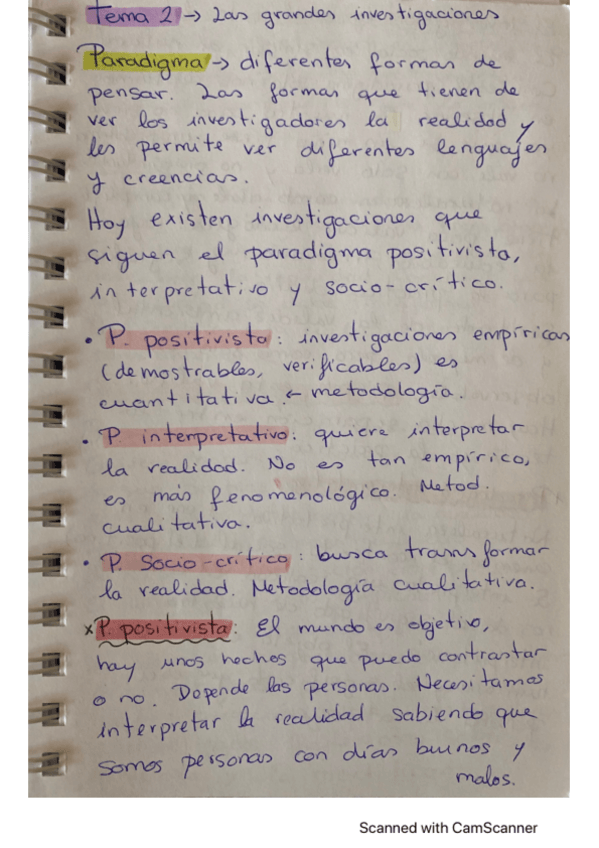 Tema 2 → Las grandes investigaciones
Paradigma → diferentes formas de
pensar. Las formas que tienen de
ver los investigadores la realidad y
les permite ver diferentes lenguajes
y creencias.
Hoy existen investigaciones que
siguen el paradigma positivista,
interpretativo y socio-crítico.
• P. positivista: investigaciones empíricas
(demostrables, verificables) es
cuantitativa. ← metodología.
• P. interpretativo: quiere interpretar
la realidad. No es tan empírico,
es más fenomenológico. Metod.
cualitativa.
• P. Socio-crítico: busca transformar
la realidad. Metodología cualitativa.
x P. positivista: El mundo es objetivo,
hay unos hechos que puedo contrastar
o no. Depende las personas. Necesitamos
interpretar la realidad sabiendo que
somos personas con días buenos y
malos.
Scanned with CamScanner